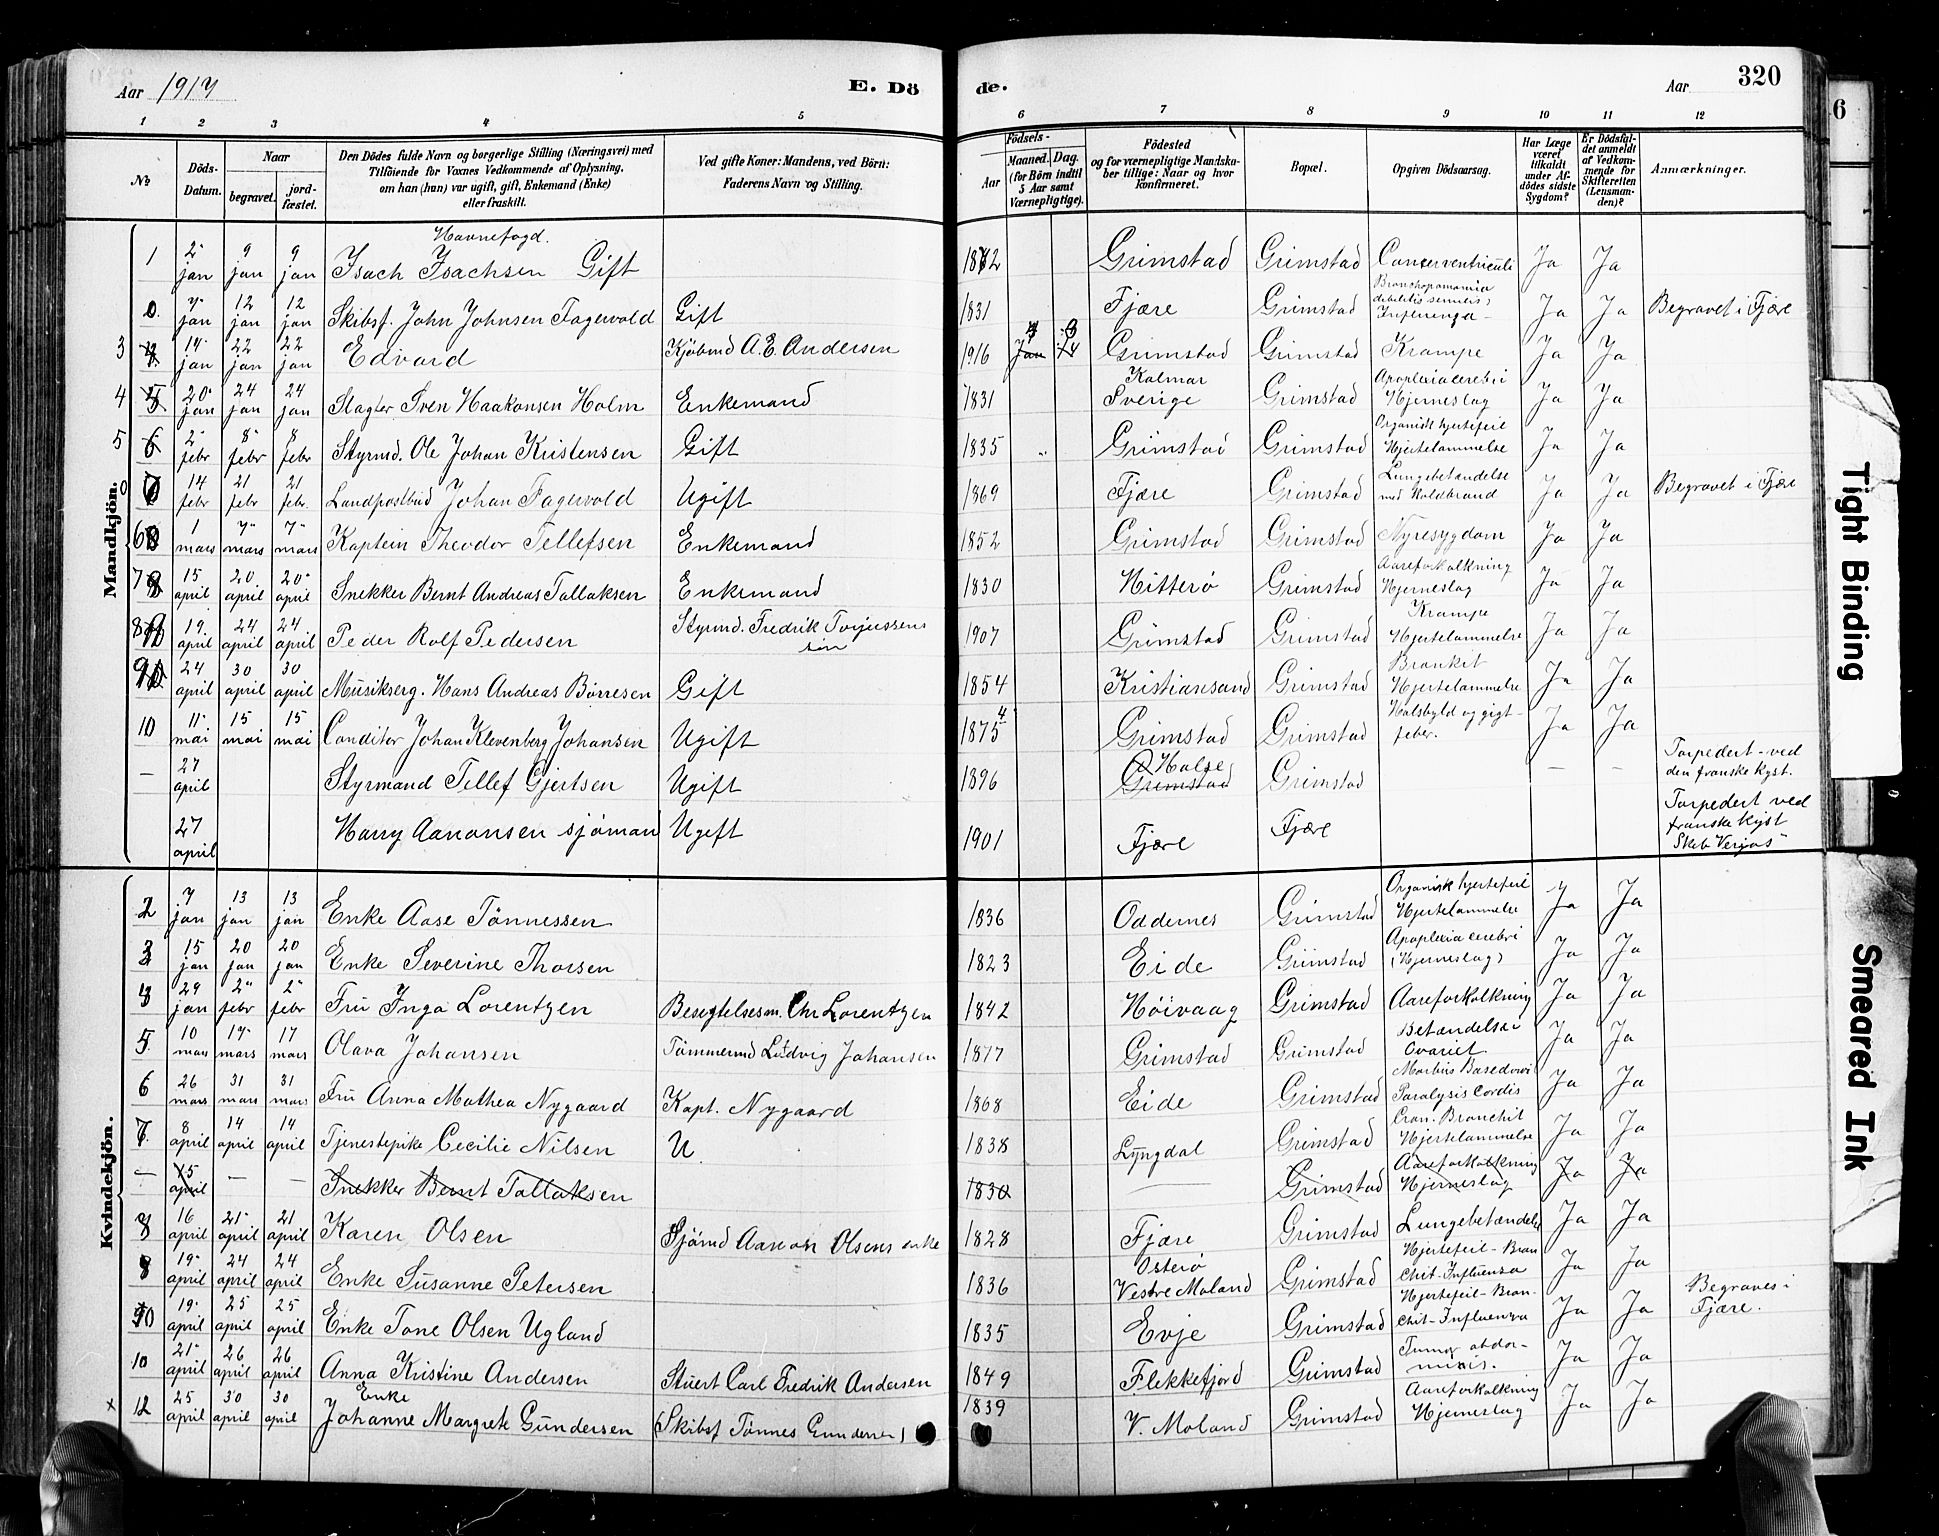 Aar 1917 E. Dö de. Aar 320
1 2 3 4 5 6 7 8 9 10 11 12
No Döds-Datum. Naar begravet. jordfæstet. Den Dödes fulde Navn og borgerlige Stilling (Næringsvei) med Tilföiende for Voxnes Vedkommende af Oplysning, om han (hun) var ugift, gift, Enkemand (Enke) eller fraskilt. Ved gifte Koner: Mandens, ved Börn: Faderens Navn og Stilling. Födsels- Aar Maaned. Dag. (for Börn indtil 5 Aar samt Værnepligtige). Födested og for værnepligtige Mandskaber tillige: Naar og hvor konfirmeret. Bopæl. Opgiven Dödsaarsag. Har Læge været tilkaldt under Afdödes sidste Sygdom? Er Dödsfaldet anmeldt af Vedkommende for Skifteretten (Lensmanden)? Anmærkninger.
Mandkjön.
1 2 jan 9 jan 9 jan Havnefogd. Isach Isachsen Gift Grimstad Grimstad Ja Ja
0. 7 jan 12 jan 12 jan Skibsf. John Johnsen Fagervold Gift 1831 Fjære Grimstad Ja Ja Begravet i Fjære
3 14 jan 22 jan 22 jan Edvard Kjöbmd A. E. Andersen 1916 Jan Grimstad Grimstad Krampe Ja Ja
4 20 jan 24 jan 24 jan Slagter Sven Haakonsen Holm Enkemand 1831 Kalmar Sverige Grimstad Apoplexia cerebri Hjerneslag Ja Ja
5 2 febr 8 febr 8 febr Styrmd. Ole Johan Kristensen Gift 1835 Grimstad Grimstad Organisk hjertefeil Hjertelammelse Ja Ja
0 14 febr 21 febr 21 febr. Landpostbud Johan Fagervold Ugift 1869 Fjære Grimstad Lungebetændelse med Koldbrand Ja Ja Begravet i Fjære
6 1 mars 7 mars 7 mars Kaptein Theodor Tellefsen Enkemand 1852 Grimstad Grimstad Nyresygdom Ja Ja
7 15 april 20 april 20 april Snekker Bernt Andreas Tallaksen Enkemand 1830 Hitterö Grimstad Aareforkalkning Hjerneslag Ja Ja
8 19 april 24 april 24 april Peder Rolf Pedersen Styrmd. Fredrik Torjussens sön 1907 Grimstad Grimstad Krampe Hjertelammelse Ja Ja
9 24 april 30 april 30 april Musikserg. Hans Andreas Börresen Gift 1854 Kristiansand Grimstad Bronkit Hjertelammelse Ja Ja
10 11 mai 15 mai 15 mai Conditor Johan Klevenberg Johansen Ugift 1875 4 Grimstad Grimstad Halsbyld og gigtfeber. Ja Ja
— 27 april Styrmand Tellef Gjertsen Ugift 1896 Halse Grimstad Grimstad — — Torpedert ved den franske Kyst.
27 april Harry Aanonsen sjöman Ugift 1901 Fjære Fjære Torpedert ved franske Kyst Skib
Kvindekjön.
2 7 jan 13 jan 13 jan Enke Aase Tönnessen 1836 Oddernes Grimstad Organisk hjertefeil Hjertelammelse Ja Ja
3 15 jan 20 jan 20 jan Enke Severine Thorsen 1823 Eide Grimstad Apoplexia cerebri (Hjerneslag) Ja Ja
4 29 jan 2 febr 2 febr Fru Inga Lorentzen Besigtelsesm. Chr Lorentzen 1842 Höivaag Grimstad Aareforkalkning Ja Ja
5 10 mars 17 mars 17 mars Olava Johansen Tömmermd Ludvig Johansen 1877 Grimstad Grimstad Betændelse i Ovariet Ja Ja
6 26 mars 31 mars 31 mars Fru Anna Mathea Nygaard Kapt. Nygaard 1868 Eide Grimstad Morbus Basedowi Paralysis Cordis Ja Ja
7 8 april 14 april 14 april Tjenestepike Cecilie Nilsen U. 1838 Lyngdal Grimstad Cron. Bronchit Hjertelammelse Ja Ja
— 15 april — — Snekker Bernt Tallaksen 1830 — Grimstad Aareforkalkning Hjerneslag Ja Ja
8 16 april 21 april 21 april Karen Olsen Sjömd Aanon Olsens enke 1828 Fjære Grimstad Lungebetændelse Ja Ja
19 april 24 april 24 april Enke Susanne Petersen 1836 Osterö Vestre Moland Grimstad Hjertefeil-Bronchit-Influenza Ja Ja
10 19 april 25 april 25 april Enke Tone Olsen Ugland 1835 Evje Grimstad Hjertefeil-Bronchit-Influenza Ja Ja Begraves i Fjære.
10 21 april 26 april 26 april Anna Kristine Andersen Stuert Carl Fredrik Andersen 1849 Flekkefjord Grimstad Tumor abdominis. Ja Ja
x 12 25 april 30 april 30 april Enke Johanne Margrete Gundersen (Skibsf Tönnes Gundersen) 1839 V. Moland Grimstad Aareforkalkning Hjerneslag Ja Ja
6
Tight Binding
Smeared Ink